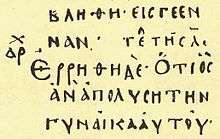 ΒΛΗΘΗ·ΕΙϹΓΕΕΝ
ΝΑΝ· ΤΕ ΤΗϹ
ΕΡΡΗΘΗΔΕ·ΟΤΙΟϹ
ΑΝΑΠΟΛΥϹΗΤΗΝ
ΓΥΝΑΙΚΑΑΥΤΟΥ·